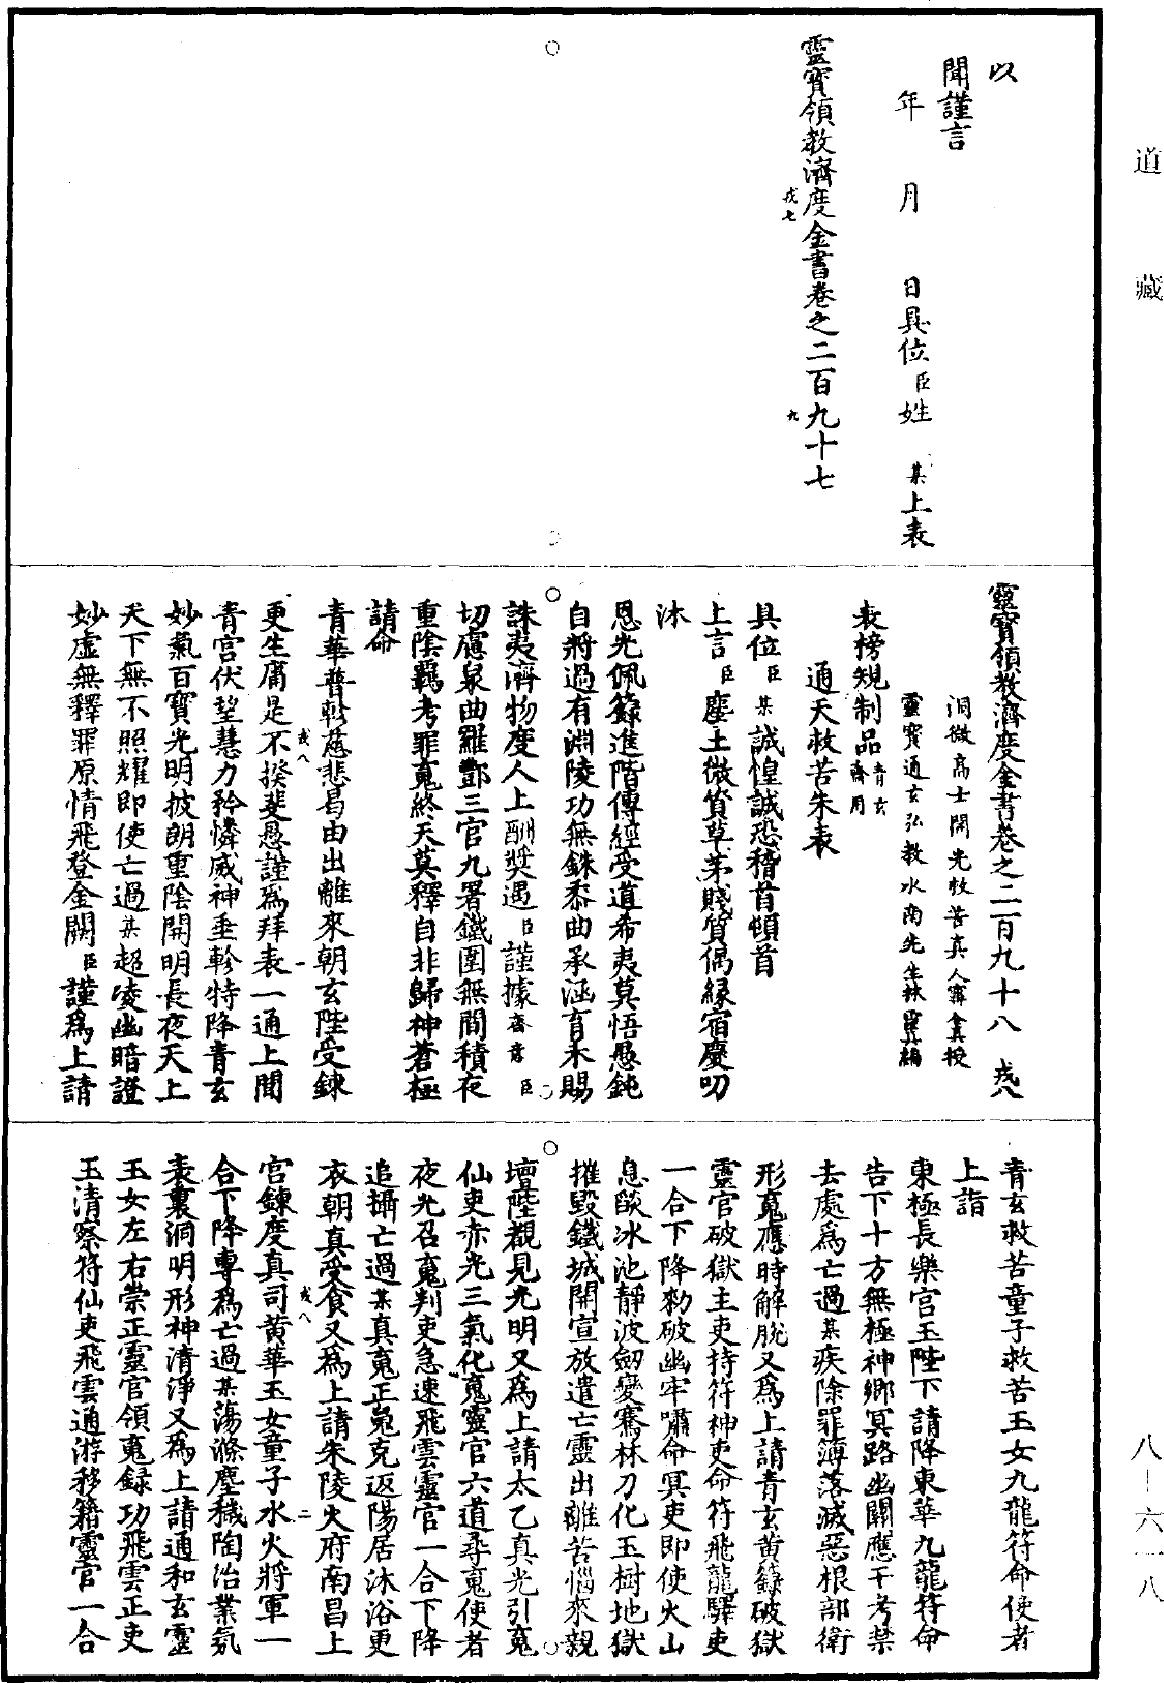 道藏
以
聞謹言
年月日具位臣姓某上表
靈寶領教濟度金書卷之二百九十七
戎七
九
靈寶領教濟度金書卷之二百九十八 戎八
洞微高士開光救苦真人甯全真授
靈寶通玄弘教水南先生林靈真編
表榜規制品青玄齋用
通天救苦朱表
具位臣某誠惶誠恐稽首頓首
上言臣塵土微質草茅賤質偶緣宿慶叨
沐
恩光佩籙進階傳經受道希夷莫悟愚鈍
自將過有淵陵功無銖黍曲承涵育未賜
誅夷濟物度人上酬獎遇臣謹據齋意臣
切慮泉曲羅酆三官九署鐵圍無間積夜
重陰羈考罪䰟終天莫釋自非歸神蒼極
請命
青華普軫慈悲曷由出離來朝玄陛受鍊
戎八
更生庸是不揆斐愚謹為拜表一通上聞
一
青宮伏望慧力矜憐威神垂軫特降青玄
妙氣百寶光明披朗重陰開明長夜天上
天下無不照耀即使亡過某超凌幽暗證
妙虛無釋罪原情飛登金闕臣謹為上請
青玄救苦童子救苦玉女九龍符命使者
上詣
東極長樂宮玉陛下請降東華九龍符命
告下十方無極神鄉冥路幽關應干考禁
去處為亡過某疾除罪簿落滅惡根部衛
形䰟應時解脫又為上請青玄黃籙破獄
靈官破獄主吏持符神吏命符飛龍驛吏
一合下降勑破幽牢嘯命冥吏即使火山
息燄冰池靜波劒變騫林刀化玉樹地獄
摧毀鐵城開宣放遣亡靈出離苦惱來親
壇陛覩見光明又為上請太乙真光引䰟
仙吏赤光三氣化䰟靈官六道尋䰟使者
夜光召䰟判吏急速飛雲靈官一合下降
追攝亡過某真䰟正䰟克返陽居沐浴更
衣朝真受食又為上請朱陵火府南昌上
戎八
宮鍊度真司黃華玉女童子水火將軍一
二
合下降專為亡過某蕩滌塵穢陶冶業氛
表裏洞明形神清淨又為上請通和玄靈
玉女左右崇正靈官領䰟錄功飛雲正吏
玉清察符仙吏飛雲通游移籍靈官一合
八-六一八